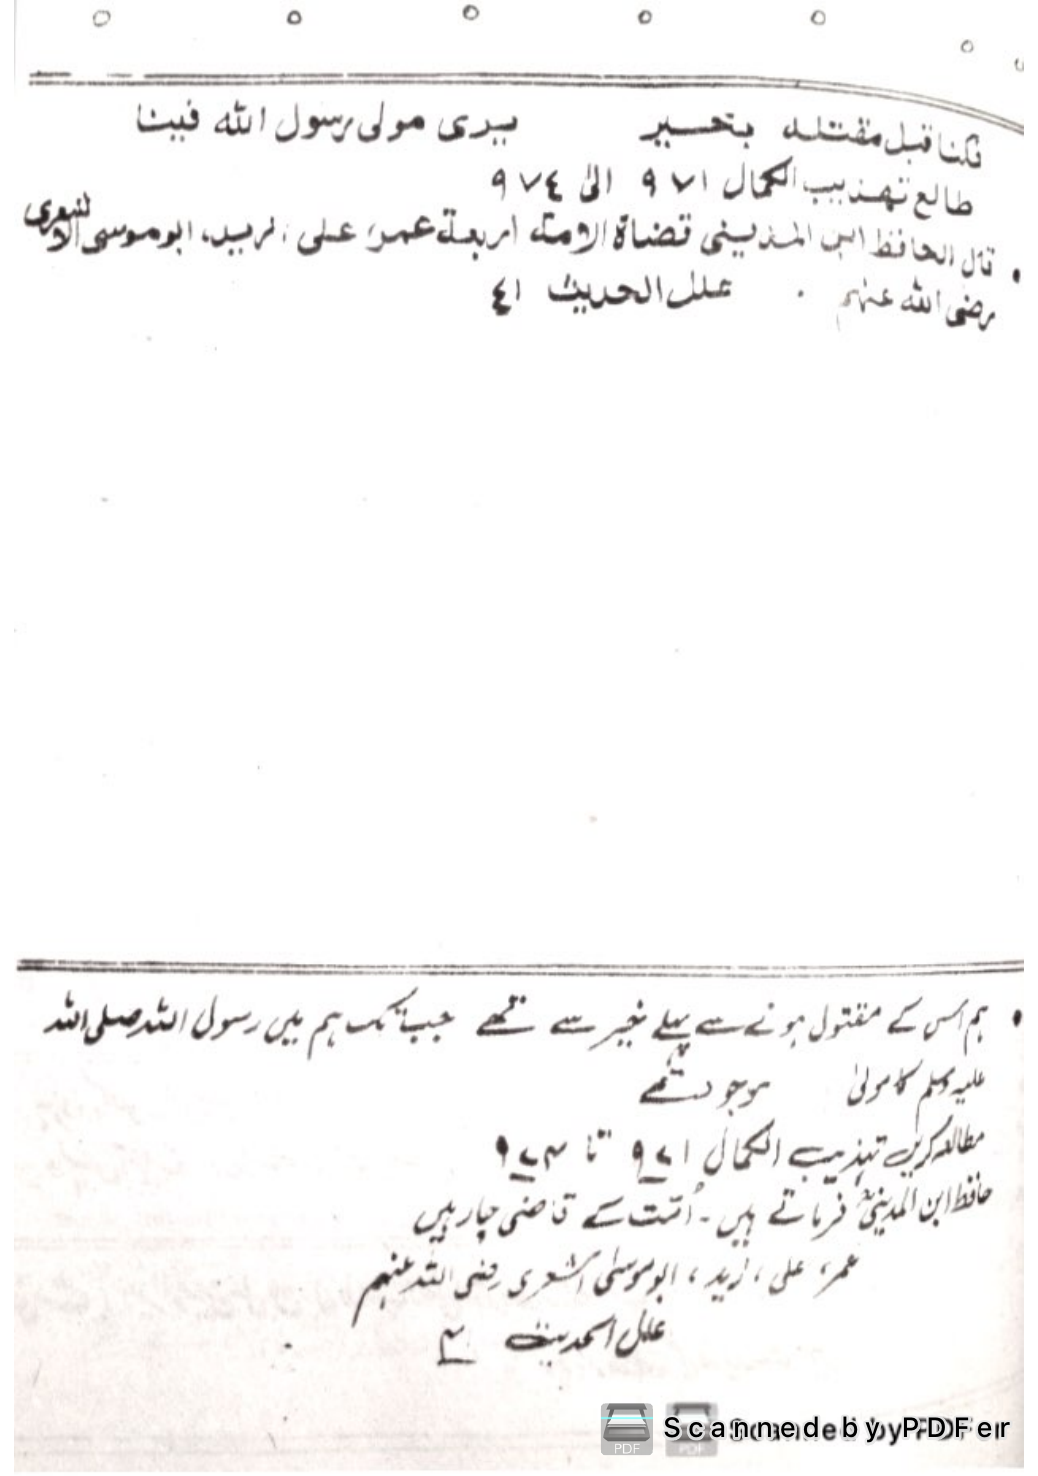 فكنا قبل مقتله بخيبر يرى مولى رسول الله فينا
طالع تهذيب الكمال ٩٧١ الى ٩٧٤
• قال الحافظ ابن المدينى قضاة الامة اربعة عمر، على، زيد، ابوموسى الاشعرى
رضى الله عنهم . علل الحديث ٤١
• ہم اس کے مقتول ہونے سے پہلے خیبر سے تھے جب تک ہم میں رسول اللہ صلی اللہ
علیہ وسلم کا مولیٰ موجود تھے
مطالعہ کریں تہذیب الکمال ۹۷۱ تا ۹۷۴
حافظ ابن المدینیؒ فرماتے ہیں۔ اُمّت کے قاضی چار ہیں
عمر، علی، زید، ابو موسیٰ اشعری رضی اللہ عنہم
علل الحدیث
Scanned by PDFer